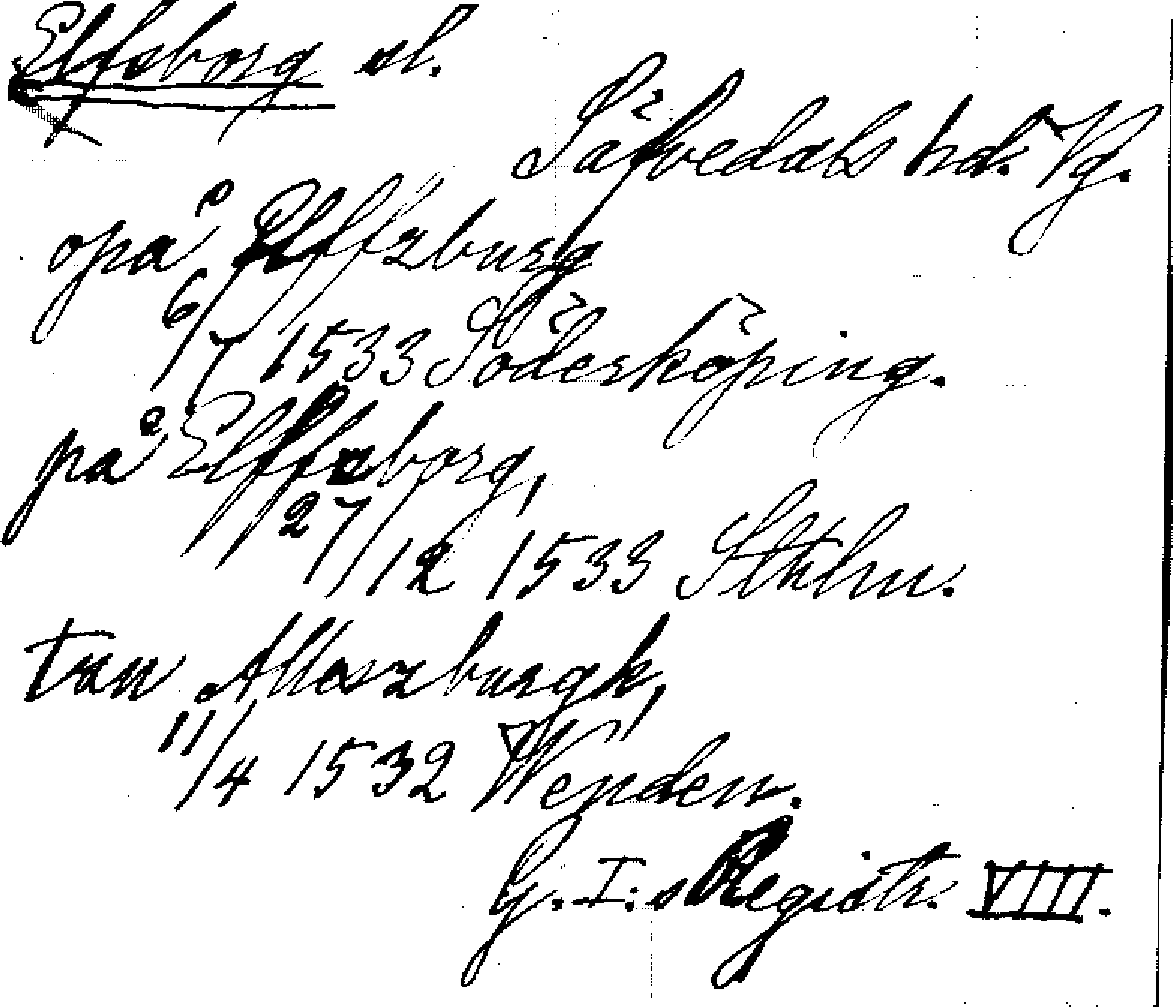 Elfsborg sl.
Säfvedals hd. Vg.
opå Elffzburg
6/7 1533 Söderköping.
på Elffzborg,
27/12 1533 Sthlm.
tun Alloszburgk,
11/4 1532 Wenden.
G. I:s Registr. VIII.